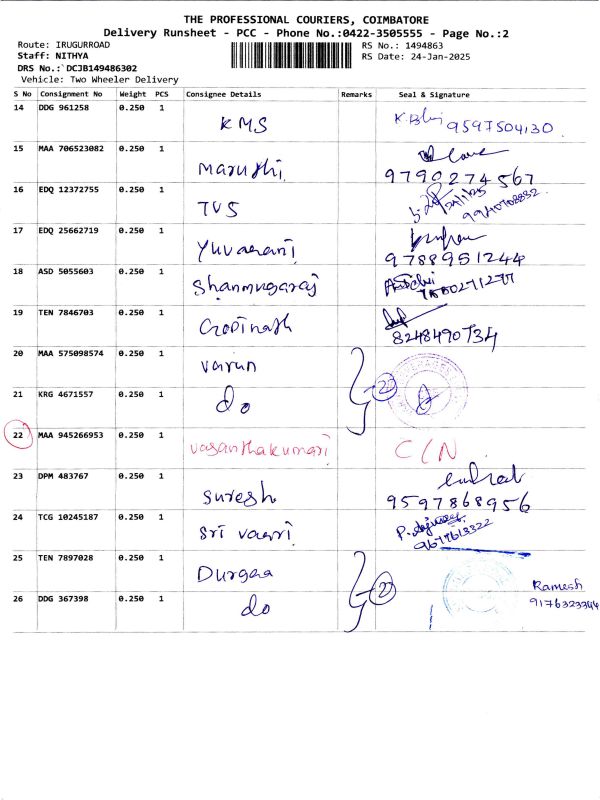 THE PROFESSIONAL COURIERS, COIMBATORE
Delivery Runsheet - PCC - Phone No.:0422-3505555 - Page No.:2
Route: IRUGURROAD RS No.: 1494863
Staff: NITHYA RS Date: 24-Jan-2025
DRS No.:`DCJB149486302
Vehicle: Two Wheeler Delivery
S No Consignment No Weight PCS Consignee Details Remarks Seal & Signature
14 DDG 961258 0.250 1 KMS 9597504130
15 MAA 706523082 0.250 1 Maruthi 9790274567
16 EDQ 12372755 0.250 1 TVS
17 EDQ 25662719 0.250 1 Yuvarani 9788951244
18 ASD 5055603 0.250 1 Shanmugaraj
19 TEN 7846703 0.250 1 Gopinath 8248490734
20 MAA 575098574 0.250 1 Varun
21 KRG 4671557 0.250 1 do
22 MAA 945266953 0.250 1 Vasanthakumari C/N
23 DPM 483767 0.250 1 Suresh 9597868956
24 TCG 10245187 0.250 1 Sri Vaari 9677613322
25 TEN 7897028 0.250 1 Durgaa
26 DDG 367398 0.250 1 do
Ramesh
9176323344